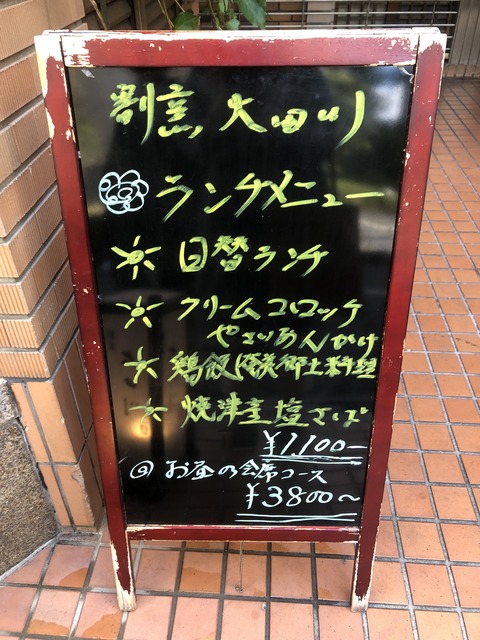 割烹 大田川
ランチメニュー
日替ランチ
クリームコロッケ
やさいあんかけ
鶏飯 奄美郷土料理
焼津産塩さば
¥1,100-
お昼の会席コース
¥3800～